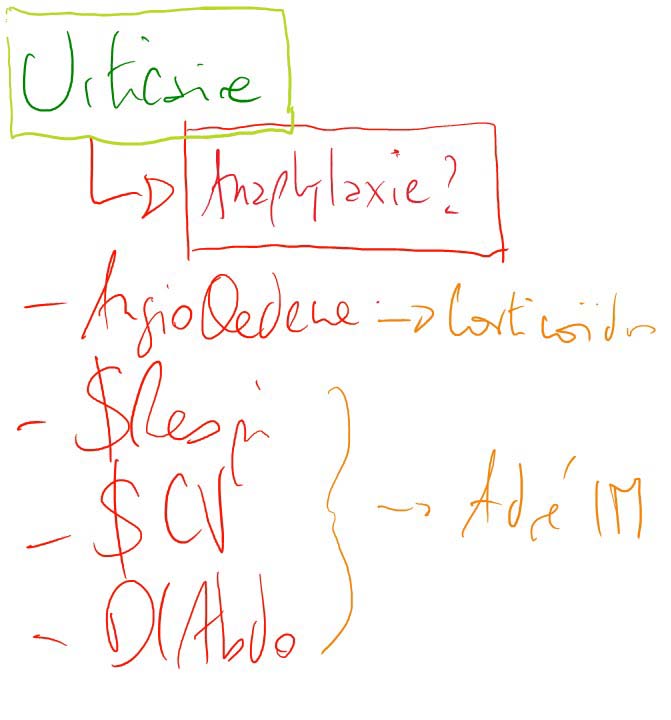 Urticaire
Anaphylaxie?
- AngioOedeme -> Corticoïdes
- $Respi
- $CV
- Dl Abdo
-> Adré IM